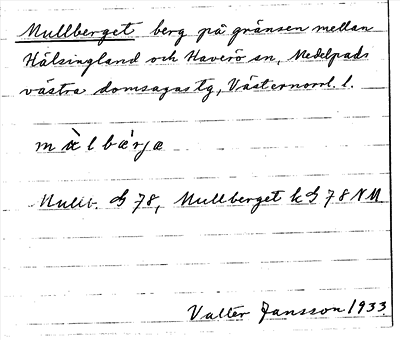 Mullberget berg på gränsen mellan
Hälsingland och Haverö sn, Medelpads
västra domsagas tg, Västernorrl. l.
màlbárjæ
G 78, Mullberget k G 78 NM
Valter Jansson 1933.